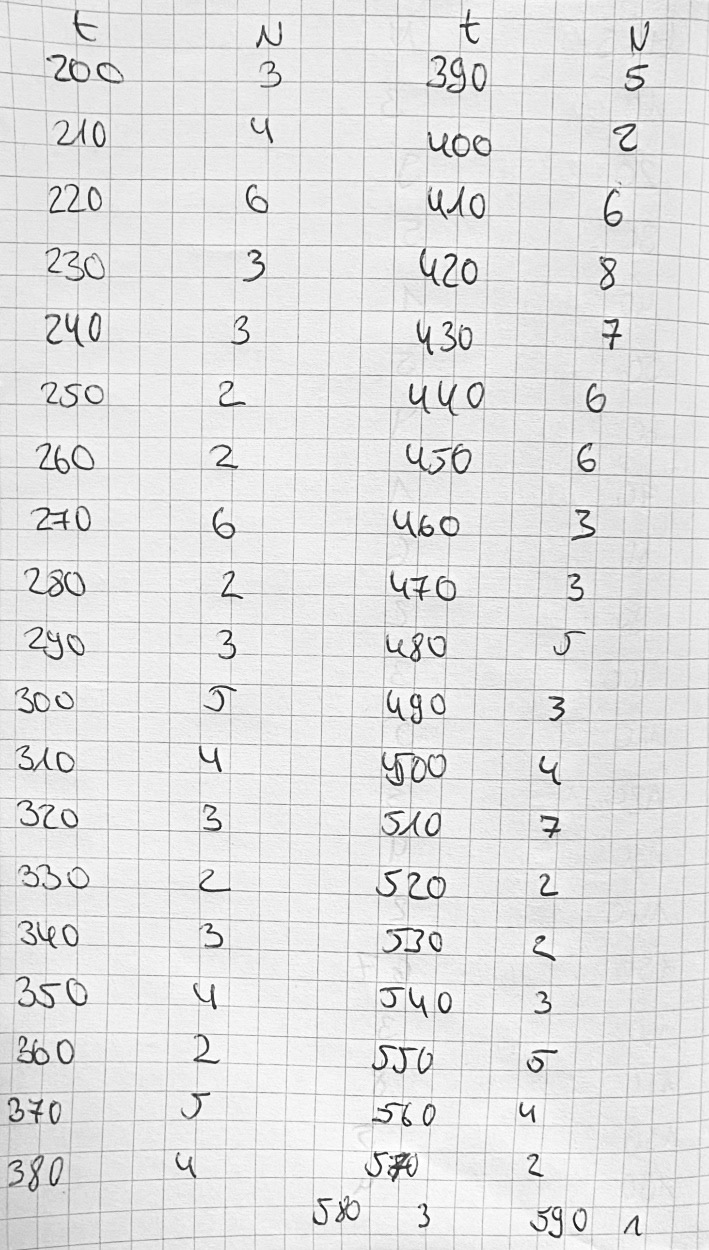 t N t N
200 3 390 5
210 4 400 2
220 6 410 6
230 3 420 8
240 3 430 7
250 2 440 6
260 2 450 6
270 6 460 3
280 2 470 3
290 3 480 5
300 5 490 3
310 4 500 4
320 3 510 7
330 2 520 2
340 3 530 2
350 4 540 3
360 2 550 5
370 5 560 4
380 4 570 2
580 3 590 1